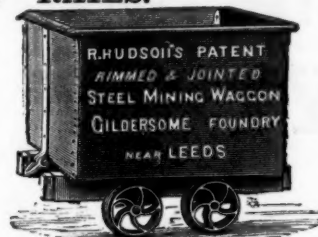 R. HUDSON'S PATENT
RIMMED & JOINTED
STEEL MINING WAGGON
GILDERSOME FOUNDRY
NEAR LEEDS